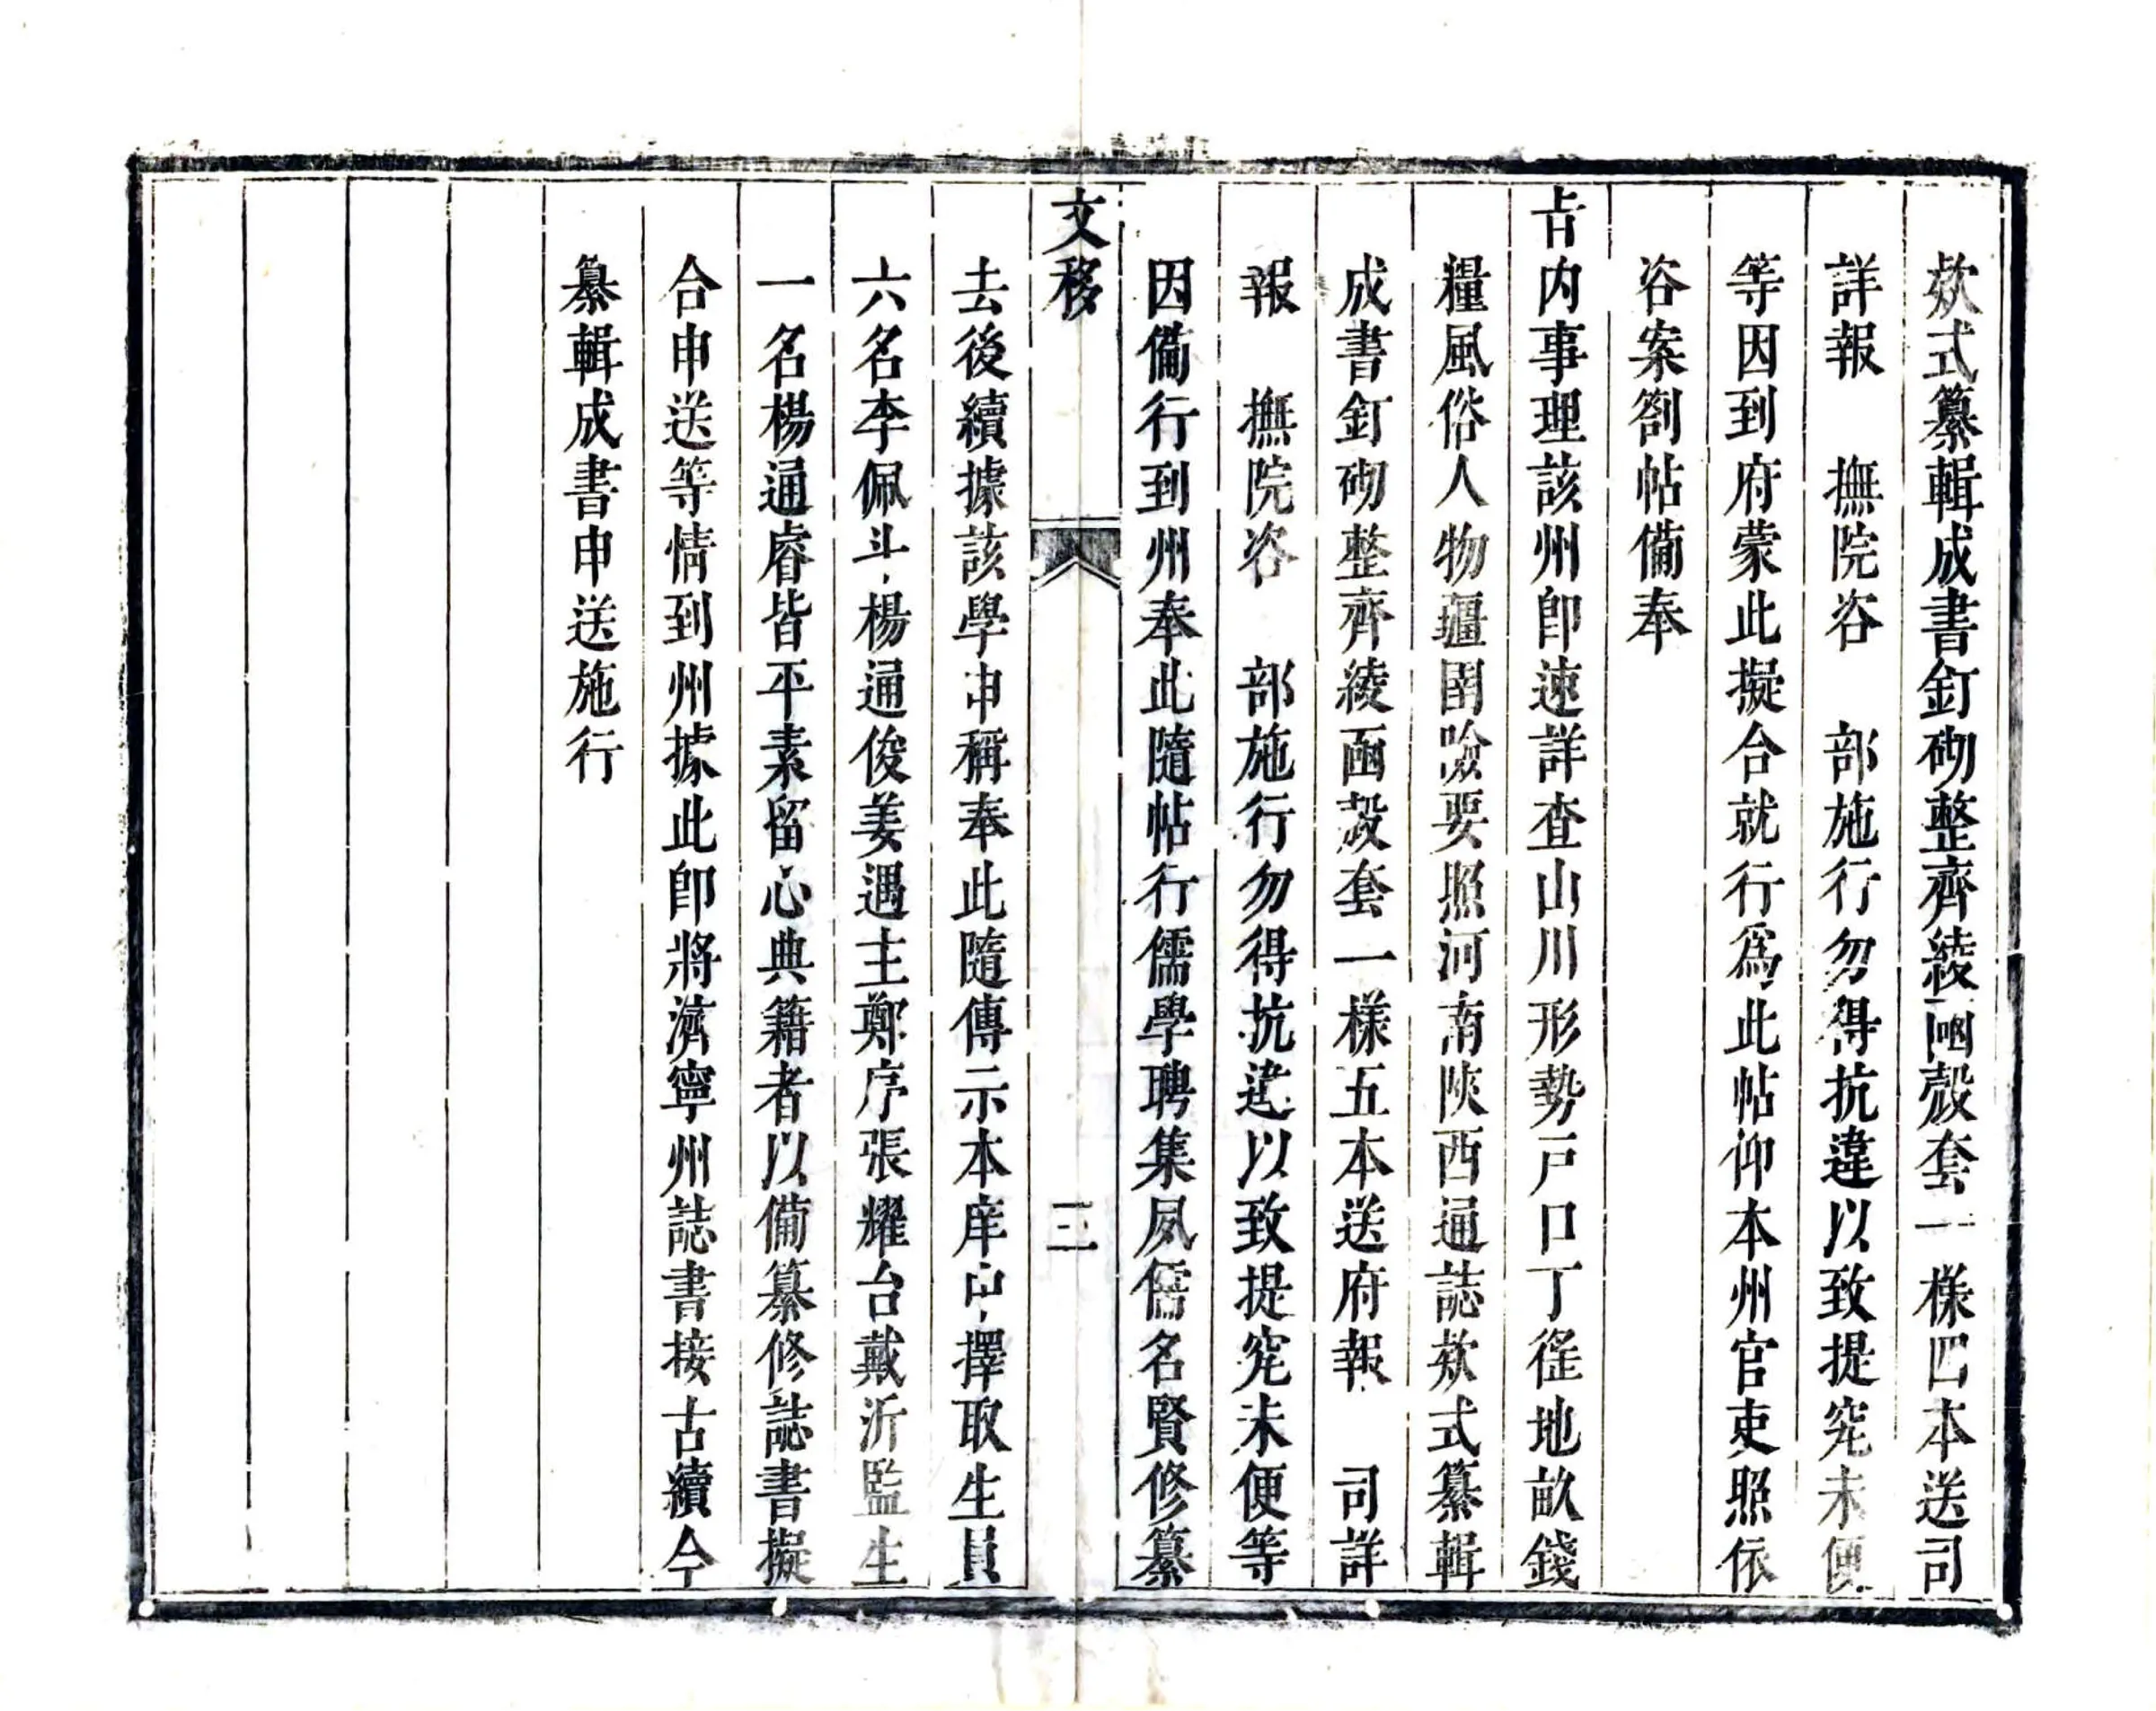 欵式纂輯成書釘砌整齊綾凾殼套一樣四本送司
詳報　撫院咨　部施行勿得抗違以致提究未便
等因到府蒙此擬合就行爲此帖仰本州官吏照依
咨案劄帖備奉
旨內事理該州卽速詳查山川形勢戸口丁徭地畝錢
糧風俗人物疆圉險要照河南陝西通誌欵式纂輯
成書釘砌整齊綾凾殼套一樣五本送府報　司詳
報　撫院咨　部施行勿得抗違以致提究未便等
因備行到州奉此隨帖行儒學聘集夙儒名賢修纂
文移　三
去後續據該學申稱奉此隨傳示本庠中擇取生員
六名李佩斗楊通俊姜遇主鄭序張耀台戴沂監生
一名楊通睿皆平素留心典籍者以備纂修誌書擬
合申送等情到州據此卽將濟寧州誌書接古續今
纂輯成書申送施行